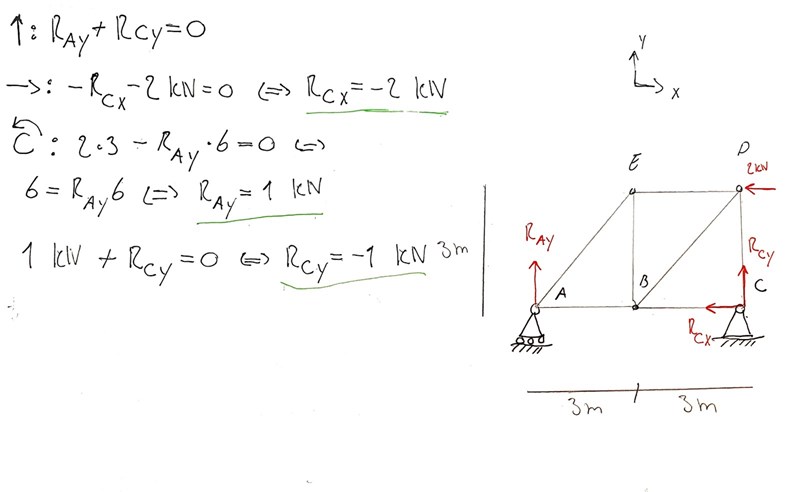 ↑: R_Ay + R_Cy = 0
→: -R_Cx - 2 kN = 0 ⇔ R_Cx = -2 kN
C: 2·3 - R_Ay·6 = 0 ⇔
6 = R_Ay 6 ⇔ R_Ay = 1 kN
1 kN + R_Cy = 0 ⇔ R_Cy = -1 kN
Y
X
E
D
2kN
R_Ay
R_Cy
3m
A
B
C
R_Cx
3m
3m